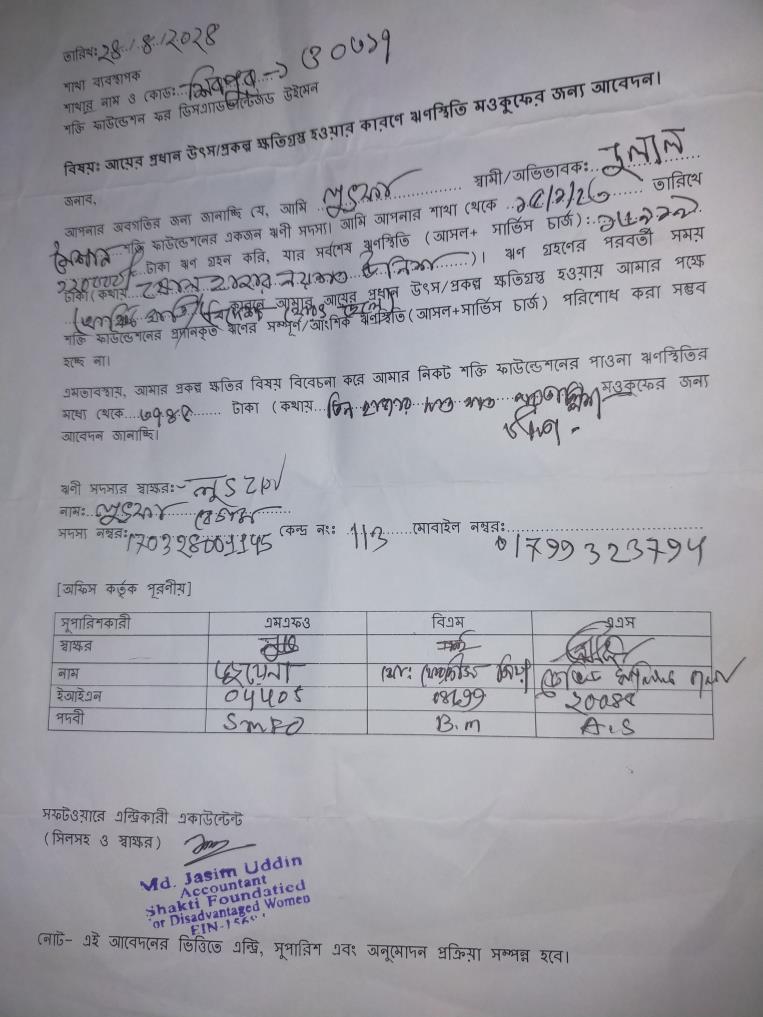 তারিখ: ২৪/৪/২০২৪
শাখা ব্যবস্থাপক
শাখার নাম ও কোড: শিবপুর → ৩০৩১৭
শক্তি ফাউন্ডেশন ফর ডিসএ্যাডভান্টেজড উইমেন
বিষয়: আয়ের প্রধান উৎস/প্রকল্প ক্ষতিগ্রস্ত হওয়ার কারণে ঋণস্থিতি মওকুফের জন্য আবেদন।
জনাব,
আপনার অবগতির জন্য জানাচ্ছি যে, আমি লুৎফা স্বামী/অভিভাবক: দুলাল
শক্তি ফাউন্ডেশনের একজন ঋনী সদস্য। আমি আপনার শাখা থেকে তারিখে
টাকা ঋণ গ্রহন করি, যার সর্বশেষ ঋনস্থিতি (আসল+ সার্ভিস চার্জ):
টাকা (কথায় হাজার নয়শত উনিশ)। ঋণ গ্রহনের পরবর্তী সময়
কারনে আমার আয়ের প্রধান উৎস/প্রকল্প ক্ষতিগ্রস্ত হওয়ায় আমার পক্ষে
শক্তি ফাউন্ডেশনের প্রদানকৃত ঋনের সম্পূর্ণ/আংশিক ঋনস্থিতি (আসল+সার্ভিস চার্জ) পরিশোধ করা সম্ভব
হচ্ছে না।
এমতাবস্থায়, আমার প্রকল্প ক্ষতির বিষয় বিবেচনা করে আমার নিকট শক্তি ফাউন্ডেশনের পাওনা ঋনস্থিতির
মধ্যে থেকে টাকা (কথায় তিন হাজার সাত শত মওকুফের জন্য
আবেদন জানাচ্ছি।
ঋনী সদস্যর স্বাক্ষর:- লুৎফা
নাম: লুৎফা বেগম
সদস্য নম্বর: 170328001145 কেন্দ্র নং: 113 মোবাইল নম্বর: 01799323794
[অফিস কর্তৃক পূরনীয়]
সুপারিশকারী এমএফও বিএম এএস
স্বাক্ষর
নাম
ইআইএন 04405 08199 20084
পদবী SMFO B.M A.S
সফটওয়ারে এন্ট্রিকারী একাউন্টেন্ট
(সিলসহ ও স্বাক্ষর)
Md. Jasim Uddin
Accountant
Shakti Foundatied
or Disadvantaged Women
EIN-
নোট- এই আবেদনের ভিত্তিতে এন্ট্রি, সুপারিশ এবং অনুমোদন প্রক্রিয়া সম্পন্ন হবে।